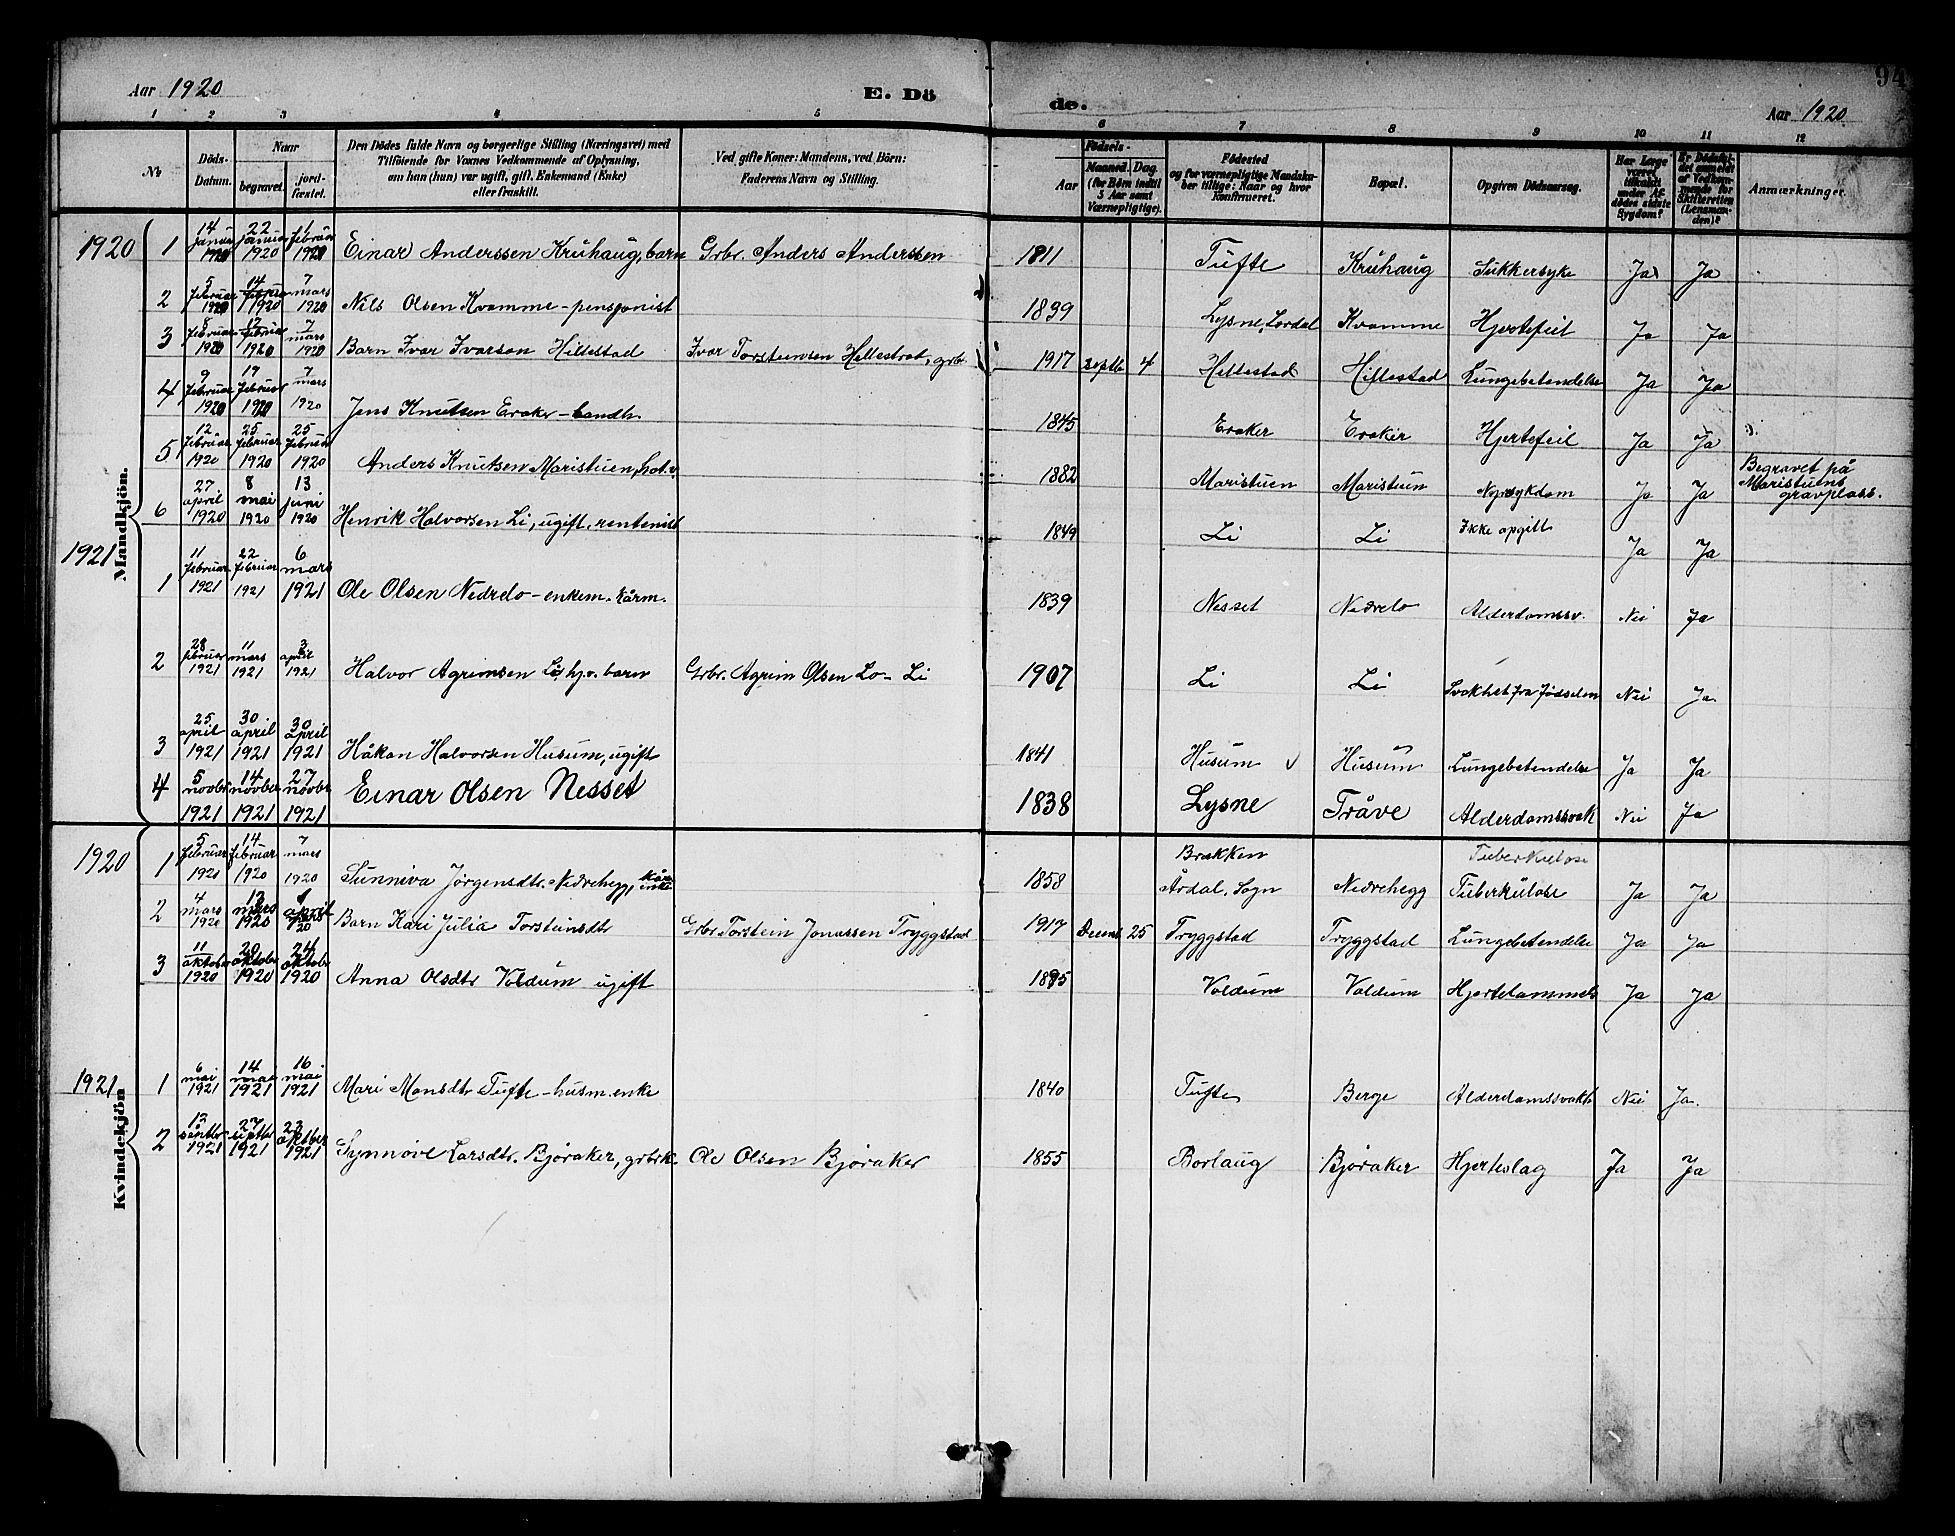 Aar 1920
E. Dö
de.
Aar 1920
94
1 2 3 4 5 6 7 8 9 10 11 12
No
Döds-Datum.
Naar
begravet.
jord-fæstet.
Den Dödes fulde Navn og borgerlige Stilling (Næringsvei) med
Tilföiende for Voxnes Vedkommende af Oplysning,
om han (hun) var ugift, gift, Enkemand (Enke)
eller fraskilt.
Ved gifte Koner: Mandens, ved Börn:
Faderens Navn og Stilling.
Födsels-
Aar
Maaned. Dag.
(for Börn indtil
5 Aar samt
Værnepligtige).
Födested
og for værnepligtige Mandska-
ber tillige: Naar og hvor
Konfirmeret.
Bopæl.
Opgiven Dödsaarsag.
Har Læge
været
tilkaldt
under Af-
dødes sidste
Sygdom?
Er Dödsfal-
det anmeldt
af Vedkom-
mende for
Skifteretten
(Lensman-
den)?
Anmærkninger.
Mandkjön.
1920 1 14 januar 1920 22 januar 1920 1 februar 1920 Einar Anderssen Kruhaug, barn Grbr. Anders Anderssen 1911 Tufte Kruhaug Sukkersyke Ja Ja
2 5 februar 1920 14 februar 1920 7 mars 1920 Nils Olsen Kvamme - pensjonist 1839 Lysne, Lærdal Kvamme Hjertefeil Ja Ja
3 8 februar 1920 17 februar 1920 7 mars 1920 Barn Ivar Ivarson Hillestad Ivar Torsteinsen Hillestad, grbr 1917 septbr 4 Hillestad Hillestad Lungebetendelse Ja Ja
4 9 februar 1920 19 februar 1920 7 mars 1920 Jens Knutsen Eraker - landh. 1845 Eraker Eraker Hjertefeil Ja Ja
5 12 februar 1920 25 februar 1920 25 februar 1920 Anders Knutsen Maristuen, hot.v. 1882 Maristuen Maristuen Nyresykdom Ja Ja Begravet på
Maristuens
gravplass.
6 27 april 1920 8 mai 1920 13 juni 1920 Henrik Halvorsen Li, ugift, rentenist 1849 Li Li Ikke opgitt Ja Ja
1921 1 11 februar 1921 22 februar 1921 6 mars 1921 Ole Olsen Nedrelo - enkem. kårm. 1839 Nesset Nedrelo Alderdomssv. Nei Ja
2 28 februar 1921 11 mars 1921 3 april 1921 Halvor Agrimsen Lo, hj.v. barn Grbr. Agrim Olsen Lo - Li 1907 Li Li Svakhet fra fødselen Nei Ja
3 25 april 1921 30 april 1921 30 april 1921 Håkon Halvorsen Husum, ugift 1841 Husum Husum Lungebetendelse Ja Ja
4 5 novbr 1921 14 novbr 1921 27 novbr 1921 Einar Olsen Nesset 1838 Lysne Tråve Alderdomssvak Nei Ja
Kvindekjön
1920 1 5 februar 1920 14 februar 1920 7 mars 1920 Sunniva Jørgensdtr. Nedrehegg, kårenke 1858 Brekken Årdal, Sogn Nedrehegg Tuberkulose Tuberkulose Ja Ja
2 4 mars 1920 13 mars 1920 april 1920 Barn Kari Julia Torsteinsdtr Grbr Torstein Jonassen Tryggstad 1917 Decembr 25 Tryggstad Tryggstad Lungebetendelse Ja Ja
3 11 oktober 1920 20 oktober 1920 24 oktober 1920 Anna Olsdtr Voldum ugift 1895 Voldum Voldum Hjertelammels Ja Ja
1921 1 6 mai 1921 14 mai 1921 16 mai 1921 Mari Monsdtr Tufte - husm.enke 1840 Tufte Berge Alderdomssvakh Nei Ja.
2 13 septbr 1921 27 septbr 1921 23 oktber 1921 Synnøve Larsdtr. Bjøraker, grbrk. Ole Olsen Bjøraker 1855 Borlaug Bjøraker Hjerteslag Ja Ja